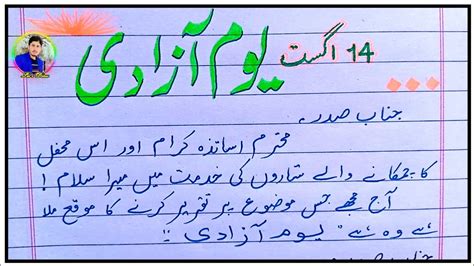 14 اگست یوم آزادی
جناب صدر۔
محترم اساتذہ کرام اور اس محفل
کا چمکانے والے ستاروں کی خدمت میں میرا سلام !
آج مجھے جس موضوع پر تقریر کرنے کا موقع ملا
ہے وہ ہے " یوم آزادی "!!
جناب صدر